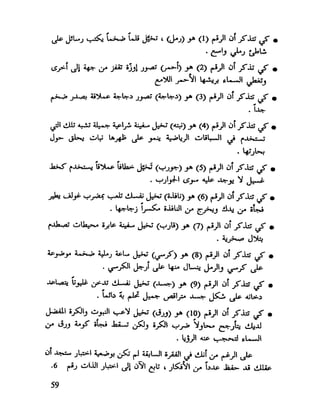 • كي تتذكر أن الرقم (1) هو (رمل) ، تخيّل قلماً ضخماً يكتب برسائل على
شاطئ رملي واسع .
• كي تتذكر أن الرقم (2) هو (أحمر) تصور إوزة تقفز من جهة إلى أخرى
وتغطي السماء بريشها الأحمر اللامع
• كي تتذكر أن الرقم (3) هو (زجاجة) تصور زجاجة عملاقة بصدر ضخم
جداً .
• كي تتذكر أن الرقم (4) هو (نبتة) تخيل سفينة شراعية جميلة تشبه تلك التي
تستخدم في السباقات الرياضية ينمو على ظهرها نبات يحلق حول
بحارتها .
• كي تتذكر أن الرقم (5) هو (جورب) تخيّل خطافاً عملاقاً يستخدم كخط
غسيل لا يوجد عليه سوى الجوارب .
• كي تتذكر أن الرقم (6) هو (نافذة) تخيل نفسك تلعب بمضرب غولف يطير
فجأة من يدك ويخرج من النافذة مكسراً زجاجها .
• كي تتذكر أن الرقم (7) هو (قارب) تخيل سفينة عابرة محيطات تصطدم
بتلال صخرية .
• كي تتذكر أن الرقم (8) هو (كرسي) تخيل ساعة رملية ضخمة موضوعة
على كرسي والرمل ينسال منها على أرجل الكرسي .
• كي تتذكر أن الرقم (9) هو (جسد) تخيل نفسك تدخن غليوناً يتصاعد
دخانه على شكل جسد متراقص جميل تحلم به دائماً .
• كي تتذكر أن الرقم (10) هو (ورق) تخيل لاعب النبوت والكرة المفضل
لديك يتأرجح محاولاً ضرب الكرة ولكن تسقط فجأة كومة ورق من
السماء لتحجب عنه الرؤيا .
على الرغم من أنك في الفقرة السابقة لم تكن بوضعية اختبار ستجد أن
عقلك قد حفظ عدداً من الأفكار ، تابع الآن إلى اختبار الذات رقم 6.
59